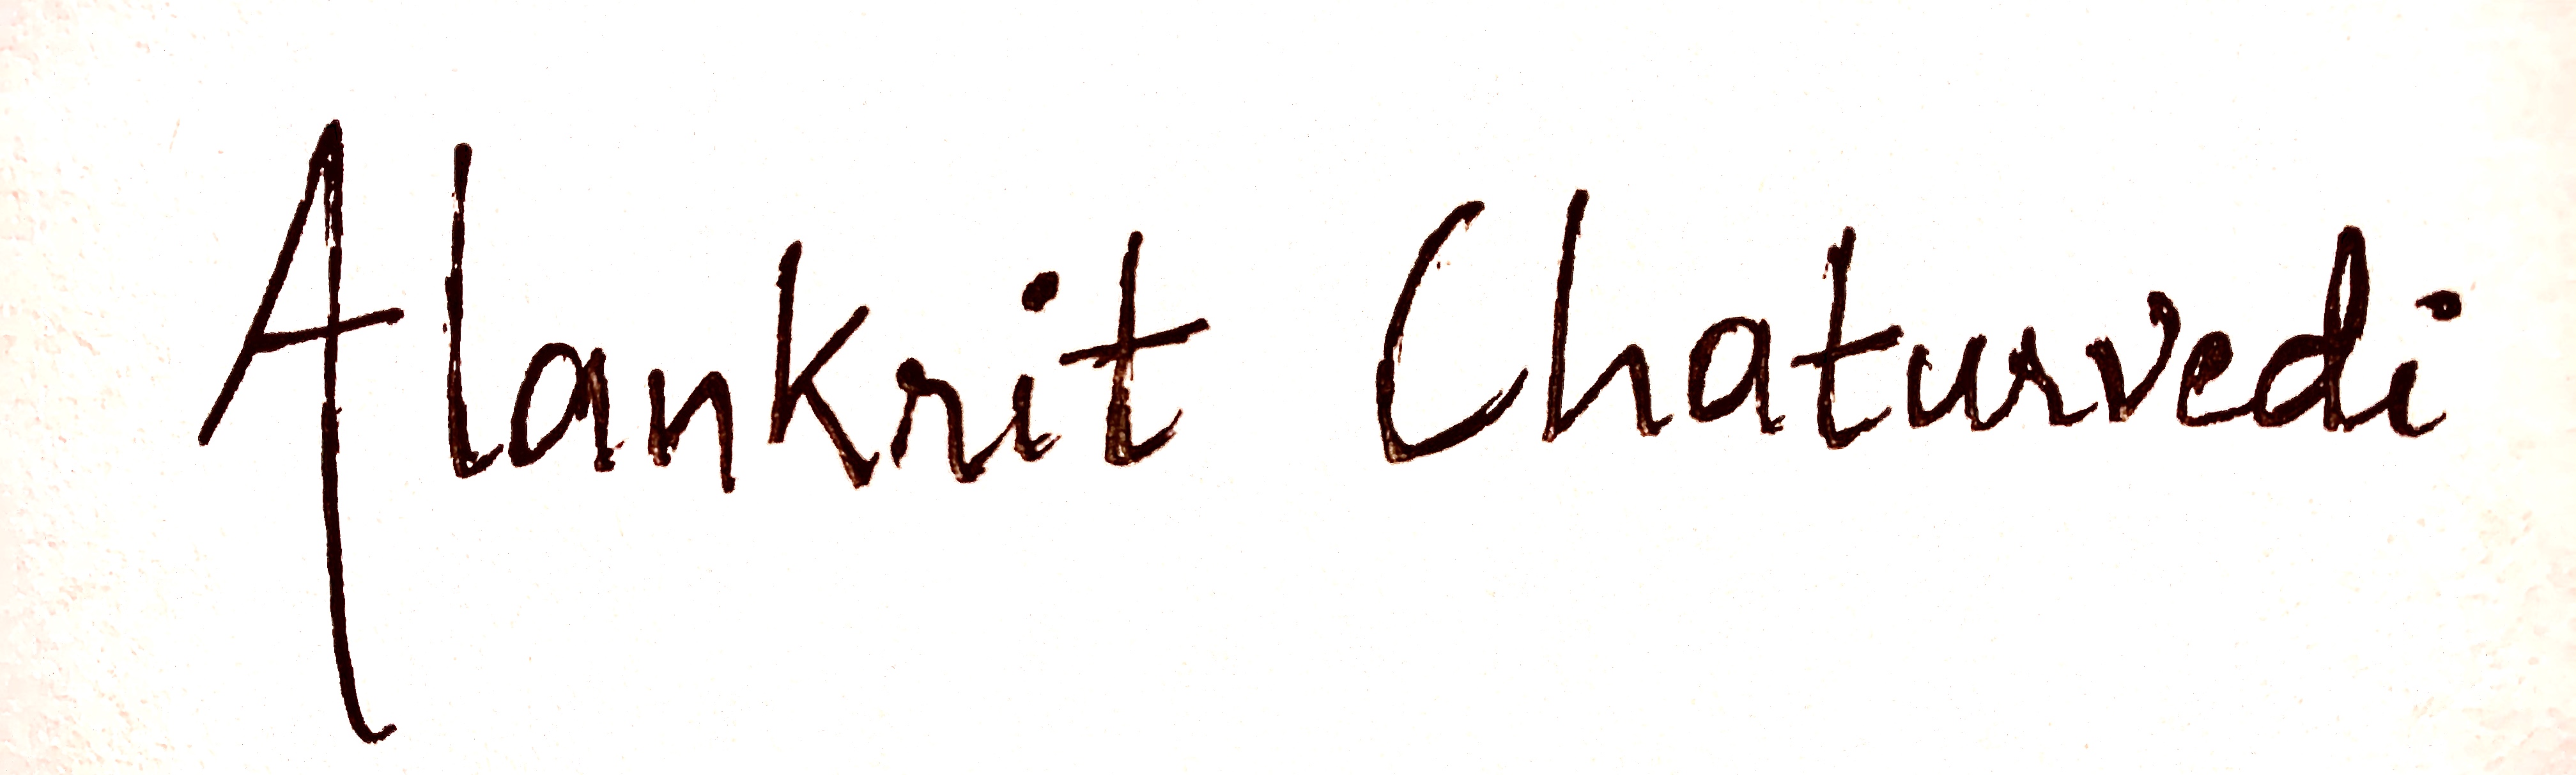 Alankrit Chaturvedi